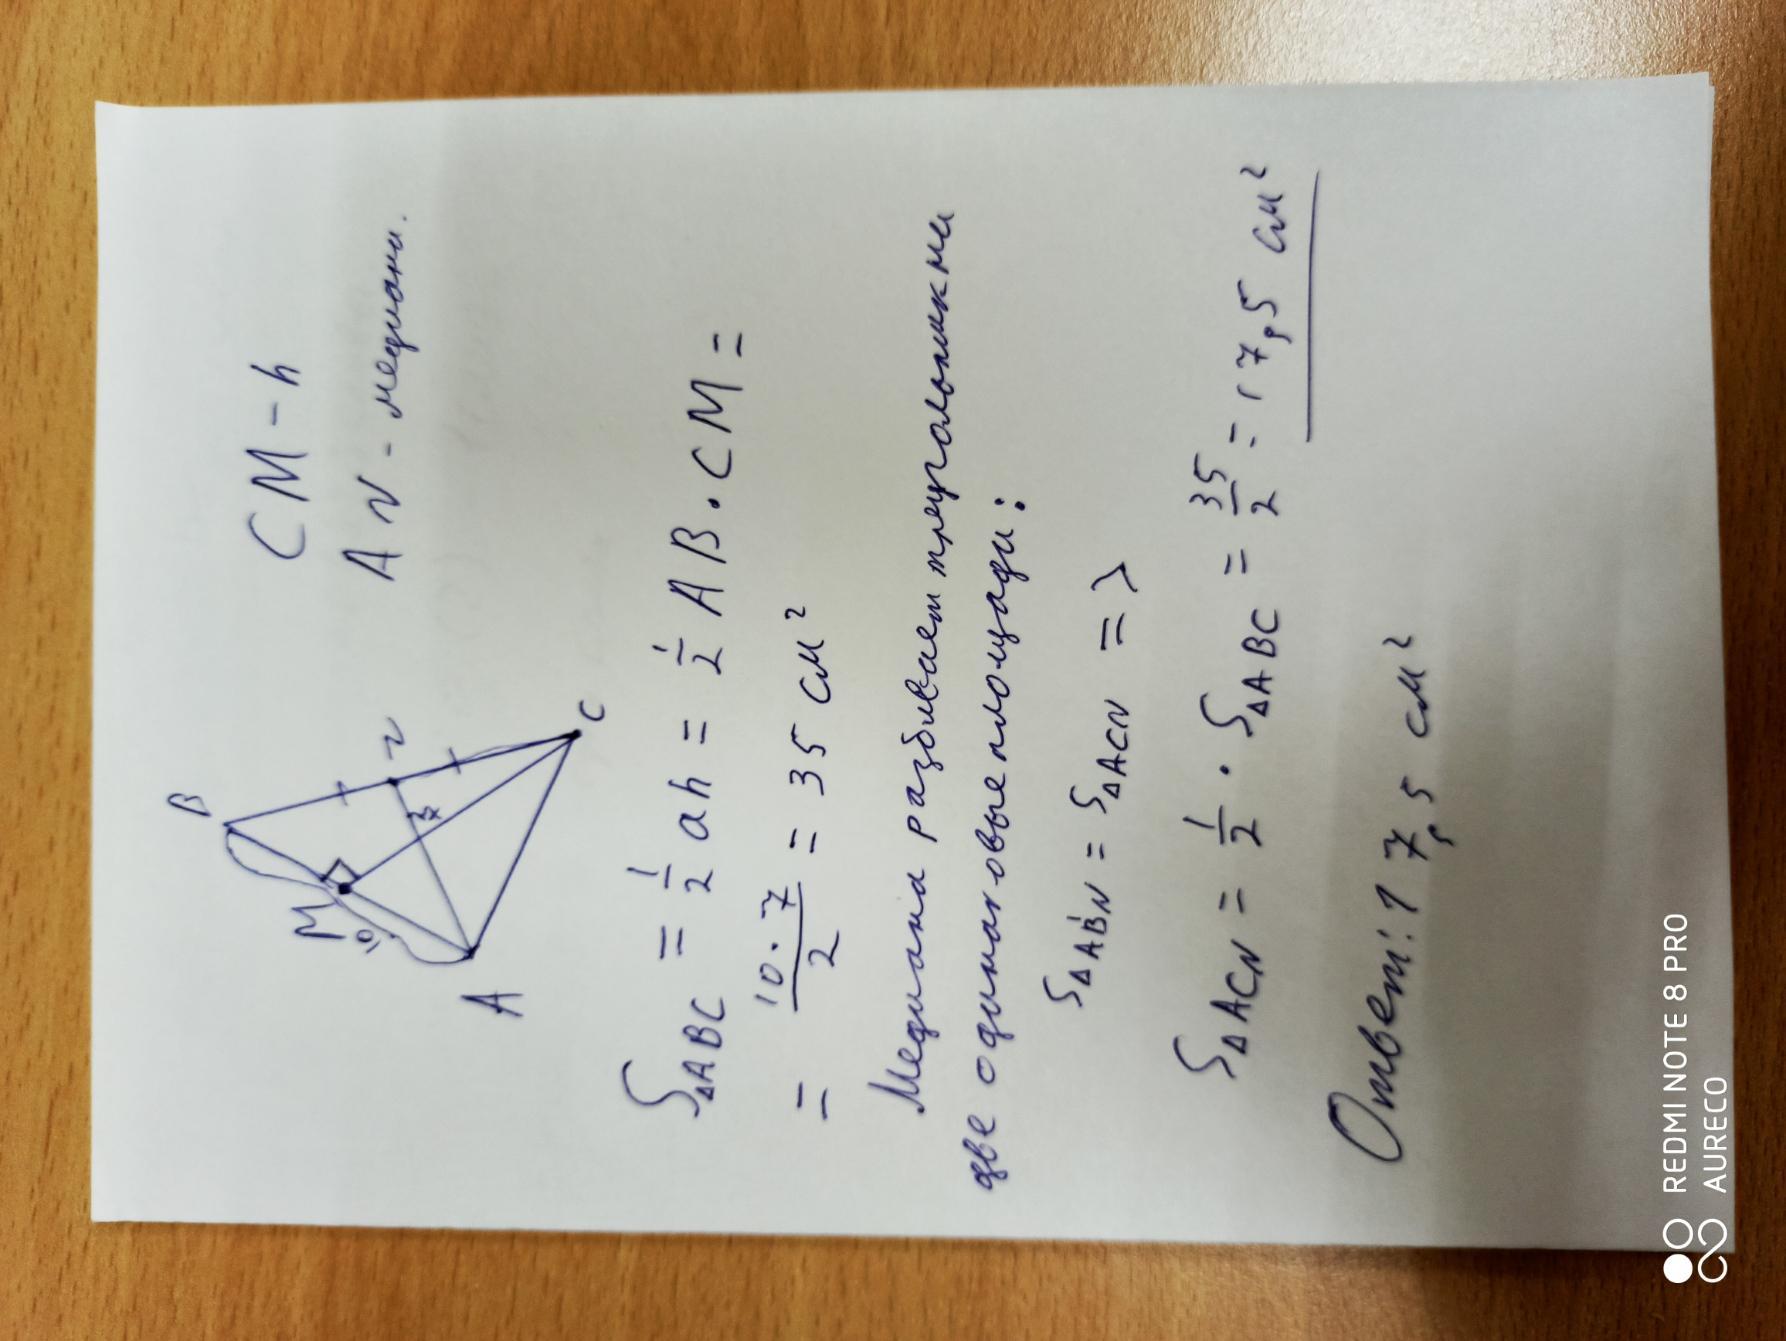 CM - h
AN - медиана.
B
M
N
10
7
A
C
S△ABC = 1/2 ah = 1/2 AB · CM =
= 10·7/2 = 35 см²
Медиана разбивает треугольник на
две одинаковые площади:
S△ABN = S△ACN =>
S△ACN = 1/2 · S△ABC = 35/2 = 17,5 см²
Ответ: 17,5 см²
REDMI NOTE 8 PRO
AURECO